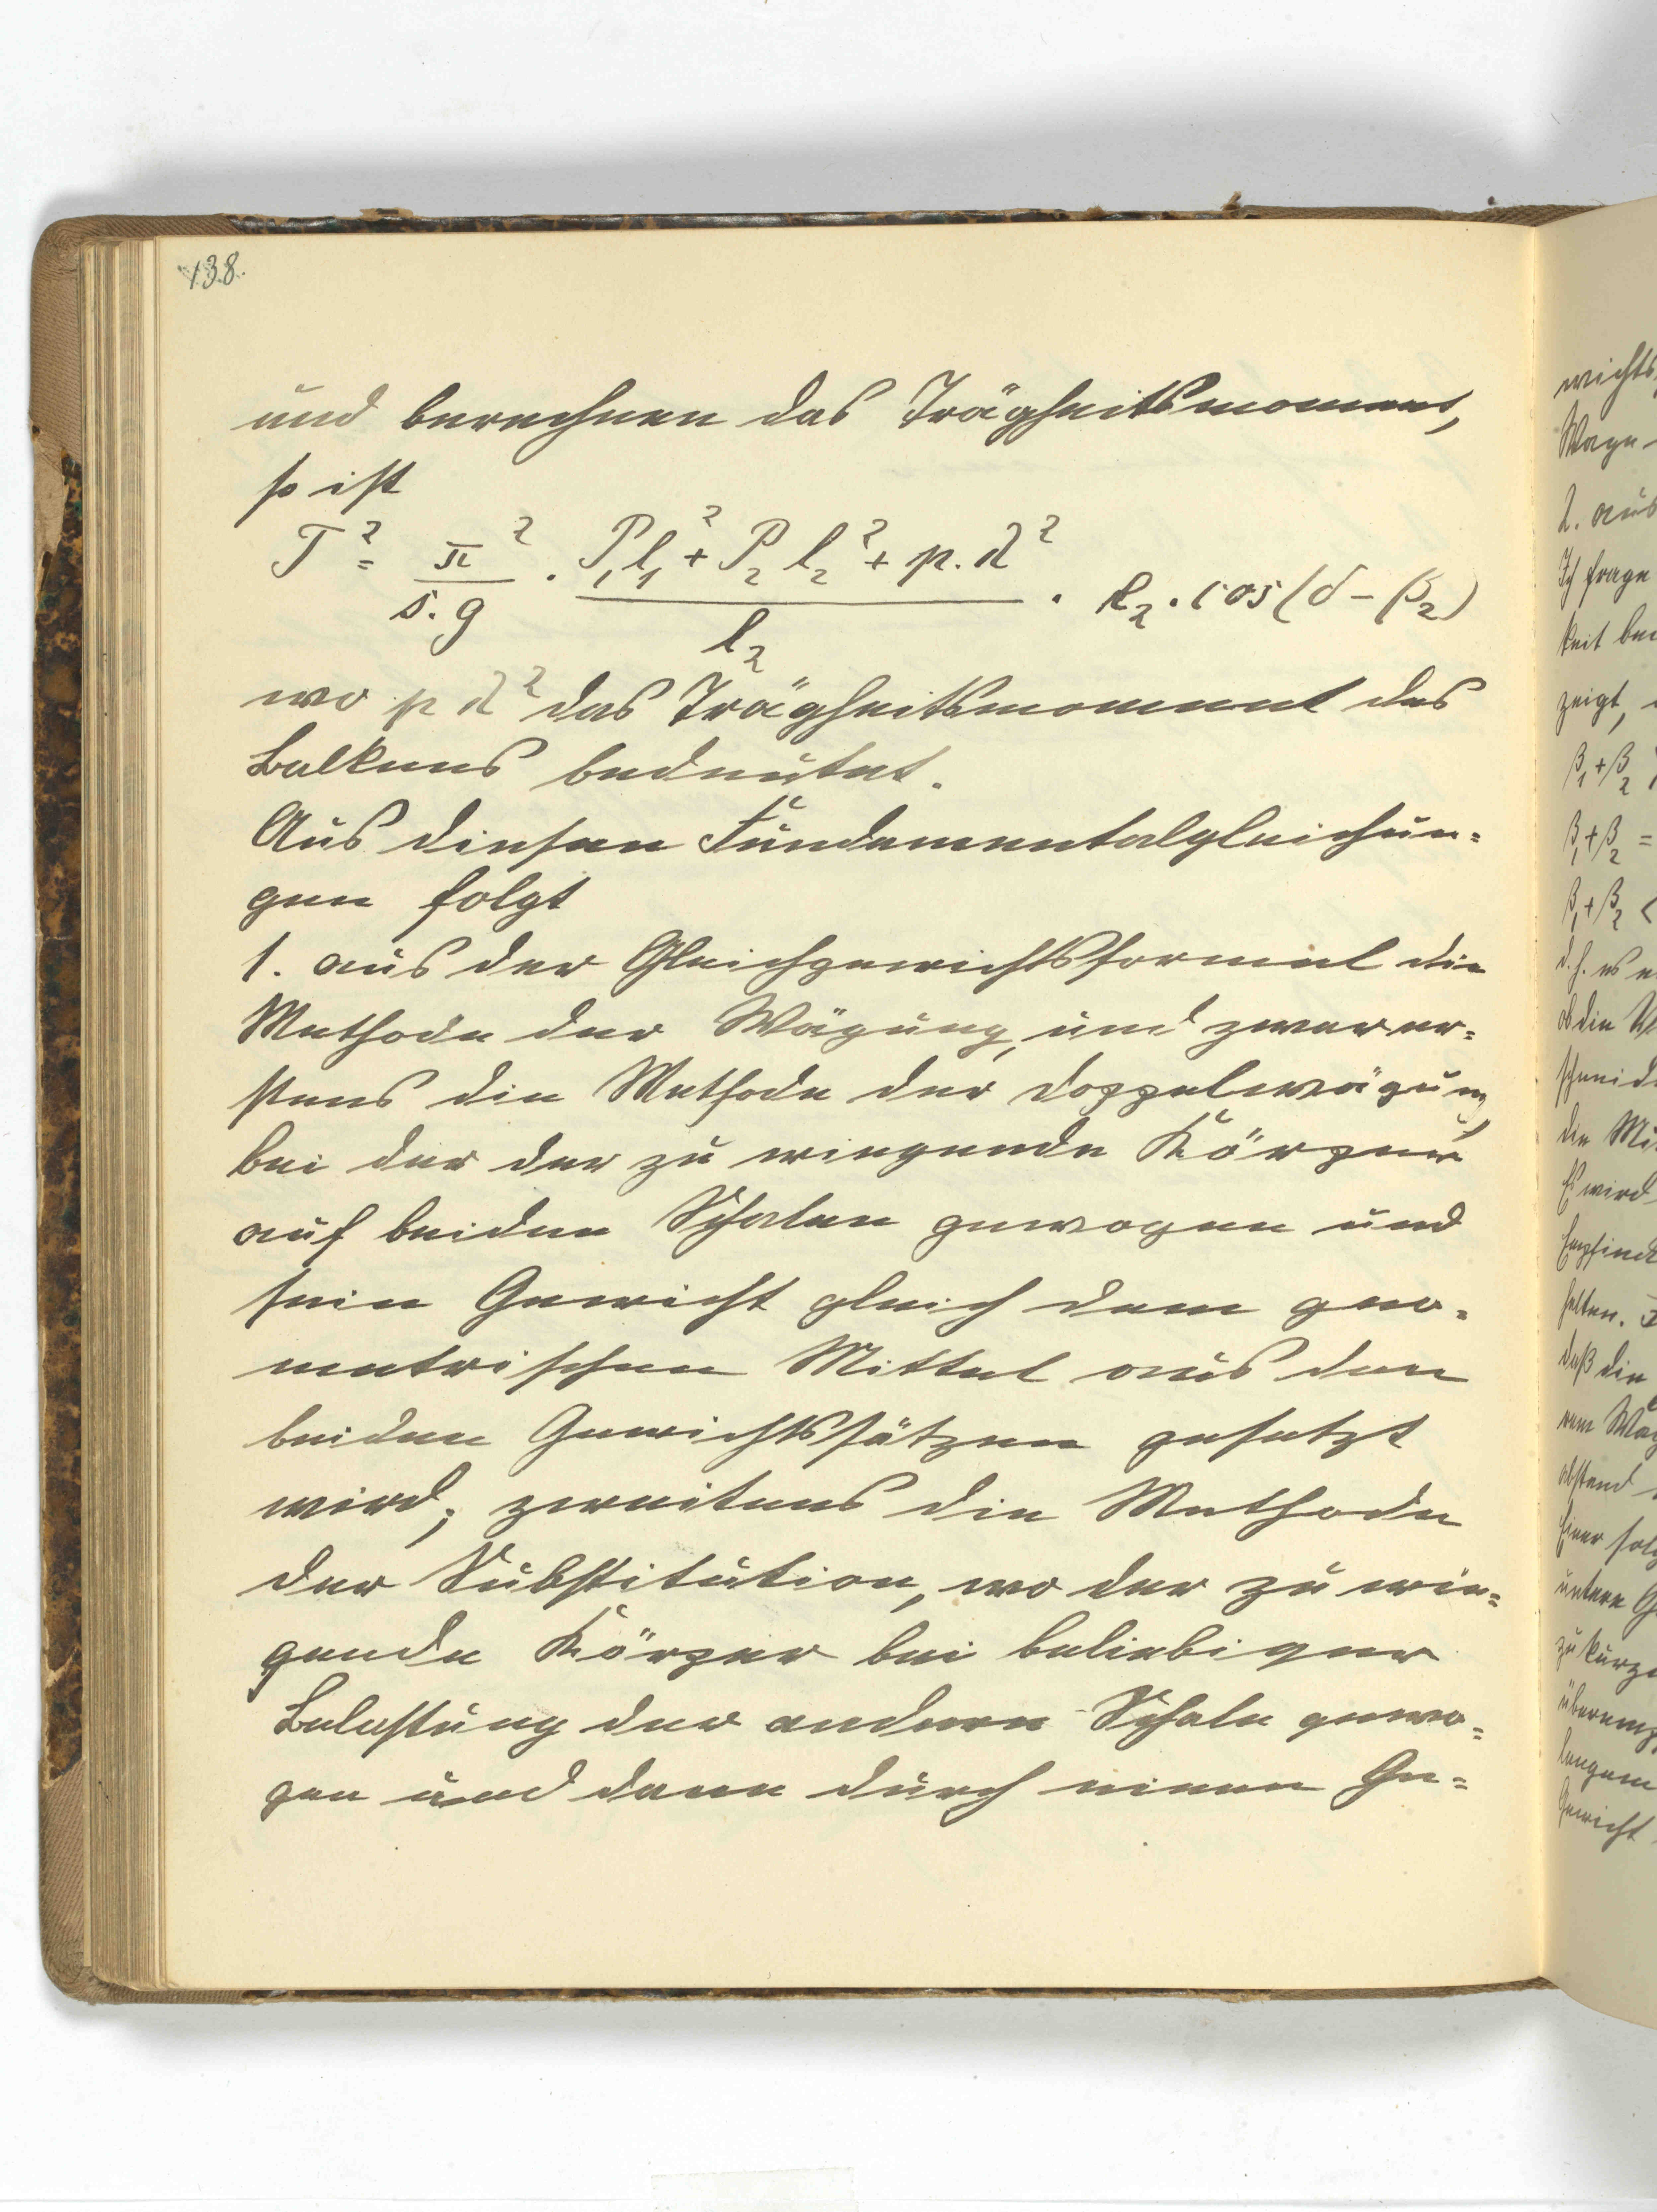 138.
und berechnen das Trägheitsmoment,
so ist
T² = π²/(s.g) · (P₁l₁² + P₂l₂² + p.d²)/l₂ · k₂.cos(δ-β₂)
wo p d² das Trägheitsmoment des
Balkens bedeutet.
Aus diesen Fundamentalgleichun=
gen folgt
1. aus der Gleichgewichtsformel die
Methode der Wägung, und zwar er=
stens die Methode der Doppelwägung,
bei der der zu wiegende Körper
auf beiden Schalen gewogen und
sein Gewicht gleich dem geo=
metrischen Mittel aus den
beiden Gewichtssätzen gesetzt
wird; zweitens die Methode
der Substitution, wo der zu wie=
gende Körper bei beliebiger
Belastung der andern Schale gewo=
gen und dann durch einen Ge=
wichts
Wage
2. aus
Ich frage
keit bei
zeigt,
β₁+β₂
β₁+β₂ =
β₁+β₂ <
d.h. es
ob die
schneid
die Mi
Es wird
Empfind
halten.
daß die
vom Wag
abstand
Einer folg
untere
zu kurze
langem
Gewicht